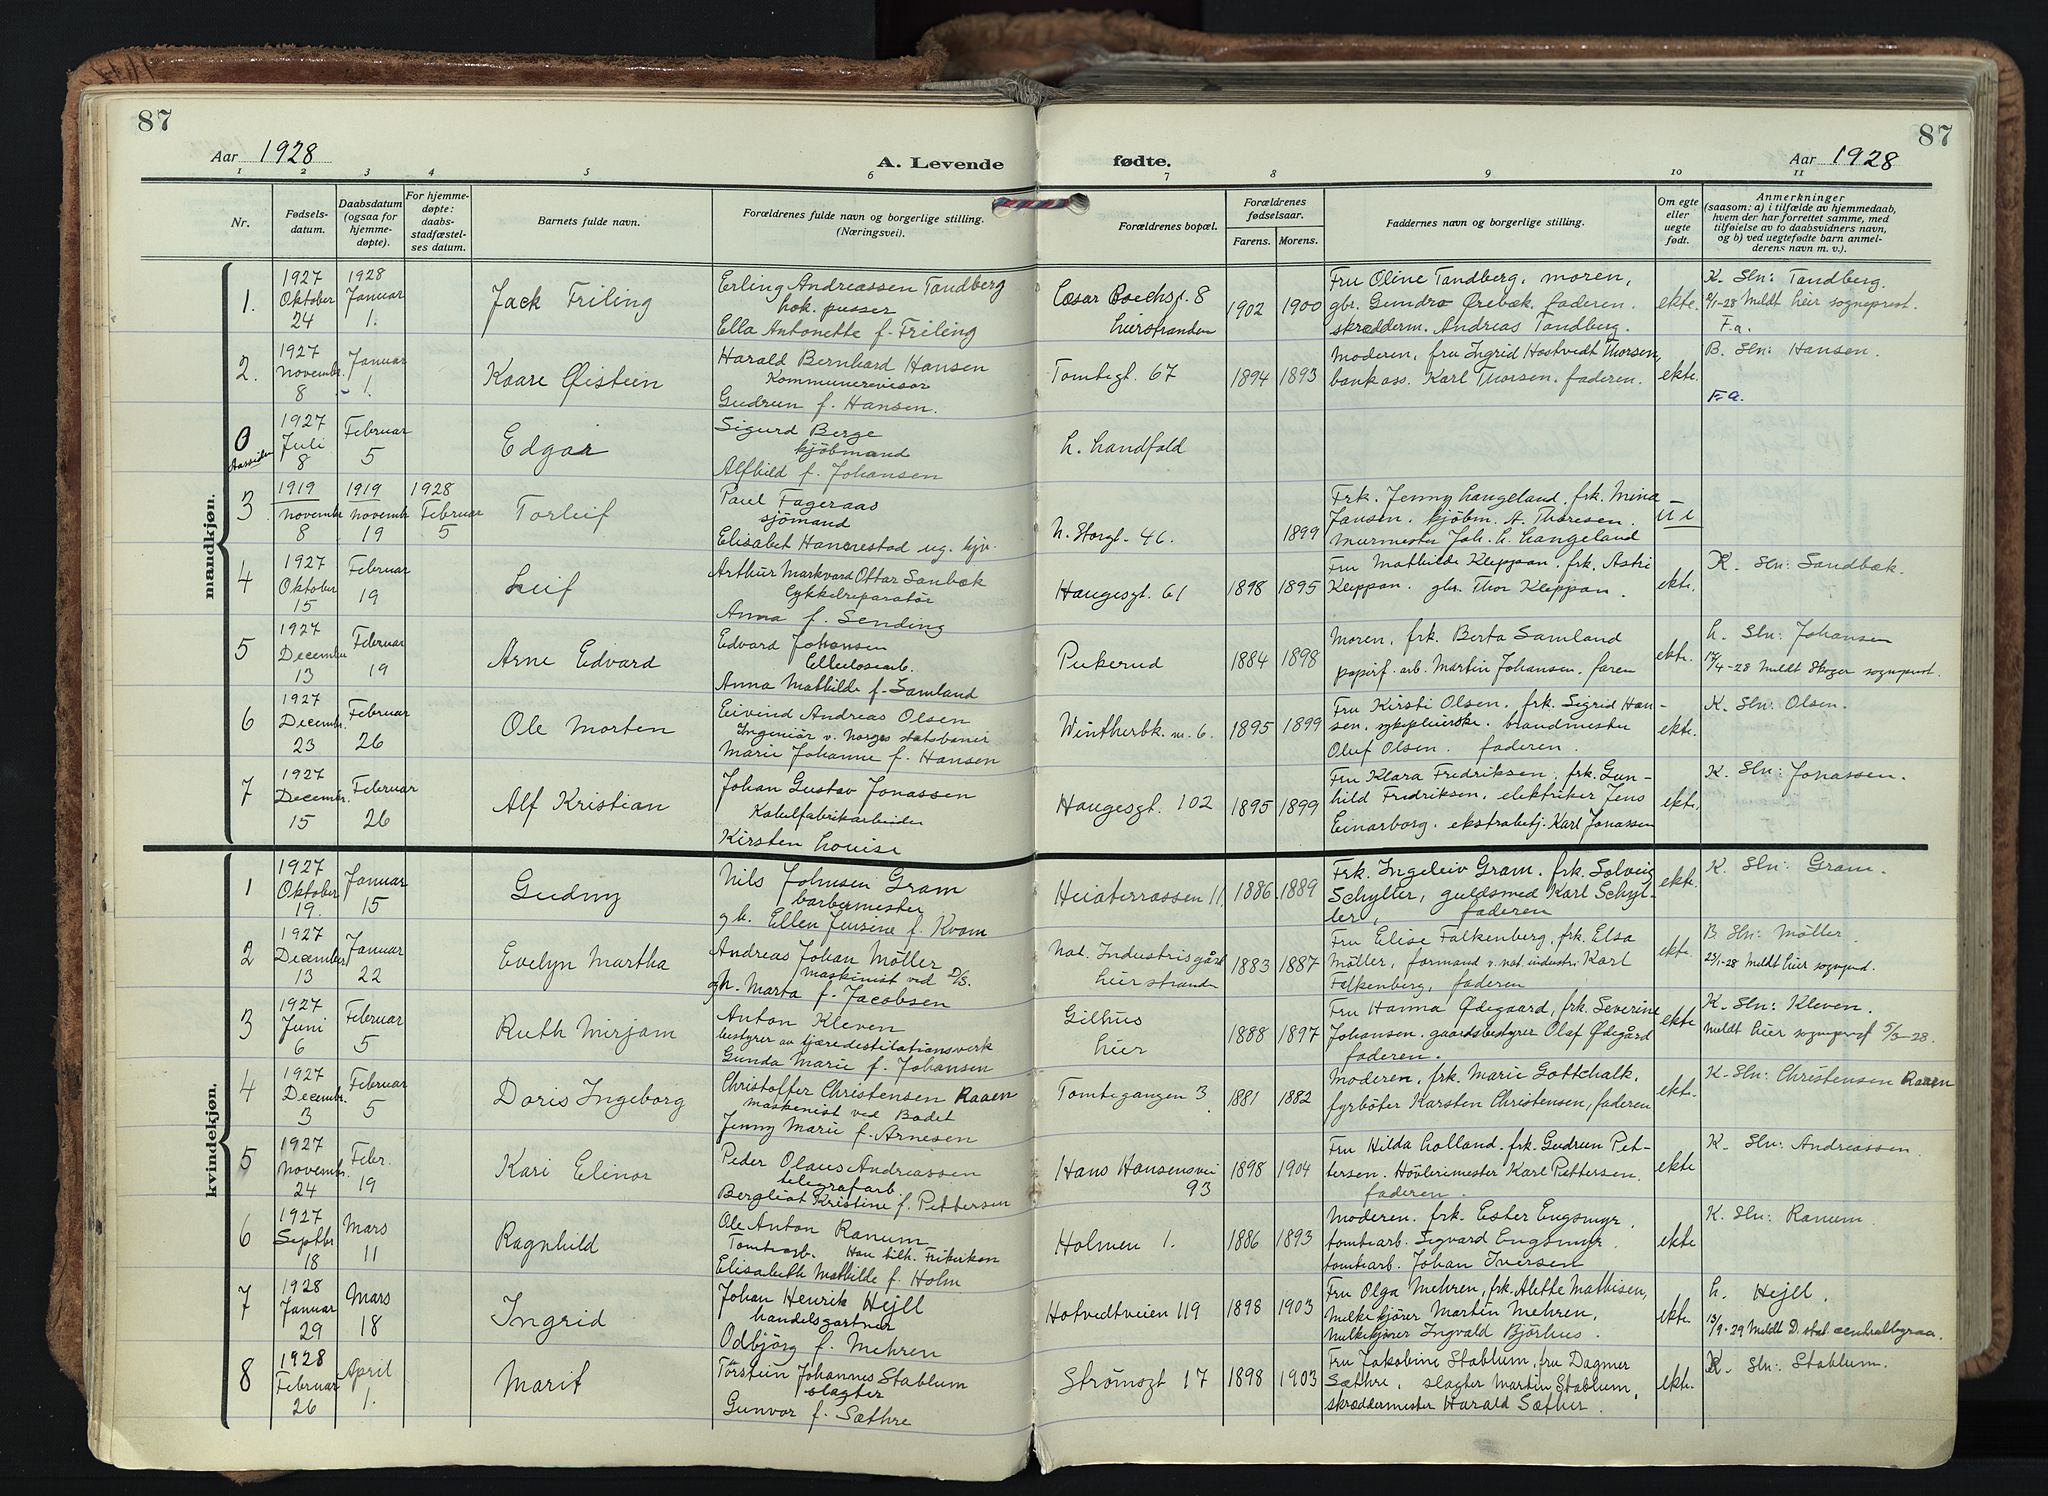 87
Aar 1928
A. Levende
1 2 3 4 5 6
Nr.
Fødsels-
datum.
Daabsdatum
(ogsaa for
hjemme-
døpte).
For hjemme-
døpte:
daabs-
stadfæstel-
ses datum.
Barnets fulde navn.
Forældrenes fulde navn og borgerlige stilling.
(Næringsvei).
87
fødte.
Aar 1928
7 8 9 10 11
Forældrenes bopæl.
Forældrenes
fødselsaar.
Farens. Morens.
Faddernes navn og borgerlige stilling.
Om egte
eller
uegte
født.
Anmerkninger
(saasom: a) i tilfælde av hjemmedaab,
hvem der har forrettet samme, med
tilføielse av to daabsvidners navn,
og b) ved uegtefødte barn anmel-
derens navn m. v.).
mandkjøn.
1.
1927
Oktober
24
1928
Januar
1.
Jack Friling
Erling Andreassen Tandberg
Ella Antonette f. Friling
8
Lierstranden
1902 1900
Fru Oline Tandberg, moren,
gbr. Gundro Ørebæk. faderen.
skrædderm. Andreas Tandberg.
ekte.
K. Sln: Tandberg.
9/1-28 Meldt Lier sogneprest.
F.a.
2.
1927
Novembr.
8
Januar
- 1.
Kaare Øistein
Harald Bernhard Hansen
Kommunerevisor
Gudrun f. Hansen.
Tomtegt. 67
1894 1893
Moderen, fru Ingrid Hostvedt Thorsen,
bankass. Karl Thorsen. faderen.
ekte.
B. Sln: Hansen.
F.a.
0
Aassiden
1927
Juli
8
Februar
5
Edgar
Sigurd Berge
kjøbmand
Alfhild f. Johansen
L. Landfald
3
1919
novembr
8
1919
novembr
19
1928
Februar
5
Torleif
Paul Fageraas
sjömand
Elisabet Hannestad ug. kjv.
N. Storgt. 46.
1899
Frk. Jenny Langeland, frk. Mina
Jansen. kjøbm. A. Thoresen.
murmester Joh. L. Langeland
4
1927
Oktober
15
Februar
19
Leif
Arthur Markvard Ottar Sanbæk
Cykkelreparatør
Anna f. Sending
Haugesgt. 61
1898 1895
Fru Mathilde Kleppan, frk. Astri
Kleppan. gbr. Thor Kleppan.
ekte.
K. Sln: Sandbæk.
5
1927
Decembr
13
Februar
19
Arne Edvard
Edvard Johansen
Cellulosearb.
Anna Mathilde f. Samland
Pukerud
1884 1898
Moren, frk. Berta Samland
papirf. arb. Martin Johansen, faren
ekte.
L. Sln: Johansen
17/4-28 Meldt Skoger sogneprest.
6
1927
Decembr.
23
Februar
26
Ole Morten
Eivind Andreas Olsen
Ingeniør v. Norges statsbaner
Marie Johanne f. Hansen
Wintherbk. n. 6.
1895 1899
Fru Kirsti Olsen, frk. Sigrid Han-
sen, sykepleierske. brandmester
Oluf Olsen. faderen.
ekte.
K. Sln: Olsen.
7
1927
Decembr.
15
Februar
26
Alf Kristian
Johan Gustav Jonassen
Kabelfabrikarbeider
Kirsten Louise
Haugesgt. 102
1895 1899
Fru Klara Fredriksen, frk. Gun-
hild Fredriksen, elektriker Jens
Einarborg. ekstrabetj. Karl Jonassen
ekte.
K. Sln: Jonassen.
kvindekjøn.
1
1927
Oktober
19.
Januar
15
Gudny
Nils Johnsen Gram
barbermester
g.h. Ellen Jensine f. Kvam
Heiaterrassen 11.
1886. 1889
Frk. Ingeleiv Gram. frk. Solveig
Schyller, guldsmed Karl Schyl-
ler, faderen
ekte.
K. Sln: Gram.
2
1927
December
13
Januar
22
Evelyn Martha
Andreas Johan Möller
maskinist ved D/S.
g.h. Marta f. Jacobsen
Nat. Industris gård
Lierstranda
1883 1887
Fru Elise Falkenberg, frk. Elsa
Möller, formand v. nat. industri Karl
Falkenberg, faderen
ekte.
B. Sln: Möller.
23/1-28 Meldt Lier sognepr.
3
1927
Juni
6
Februar
5
Ruth Mirjam
Anton Kleven
bestyrer av tjæredestilationsverk
Gunda Marie f. Johansen
Gilhus
Lier
1888 1897
Fru Hanna Ødegaard, frk. Severine
Johansen. gaardsbestyrer Olaf Ødegård
faderen.
ekte
K. Sln: Kleven.
Meldt Lier sogneprest 5/3-28.
4
1927
Decembr.
3
Februar
5
Doris Ingeborg
Christoffer Christensen Raaen
maskenist ved Badet
Jenny Marie f. Arnesen
Tomtegangen 3
1881 1882
Moderen, frk. Marie Gottchalk.
fyrböter Karsten Christensen, faderen
ekte.
K. Sln: Christensen Raaen
5
1927
Novembr.
24
Febr.
19
Kari Elinor
Peder Olaus Andreassen
telegrafarb
Bergliot Kristine f. Pettersen
Hans Hansensvei
93
1898 1904
Fru Hilda Lolland. frk. Gudrun Pet-
tersen. Hövlerimester Karl Pettersen.
faderen.
ekte
K. Sln: Andreassen.
6
1927
Septbr
18
Mars
11
Ragnhild
Ole Anton Ranum
Tomtearb. Han tilh. Frikirken
Elisabeth Mathilde f. Holm
Holmen 1.
1886 1893
Moderen. frk. Ester Engsmyr.
tomtearb. Sigvard Engsmyr.
tomtearb. Johan Iversen
ekte
K. Sln: Ranum.
7
1928
Januar
29
Mars
18
Ingrid
Johan Henrik Hejll
handelsgartner
Odbjörg f. Mehren
Hotvedtveien 119
1898 1903
Fru Olga Mehren, frk. Alette Mathisen,
Melkekjører Martin Mehren,
Melkekjører Ingvald Bjørhus.
ekte.
L. Hejll.
13/9-29 Meldt D. stat. centralbyraa.
8
1928
Februar
26
April
1.
Marit
Törstein Johannes Stablum
slagter
Gunvor f. Sæthre
Strømsgt 17
1898 1903
Fru Jakobine Stablum, fru Dagmar
Sæthre, slagter Martin Stablum,
skræddermester Harald Sæther.
ekte.
K. Sln: Stablum.